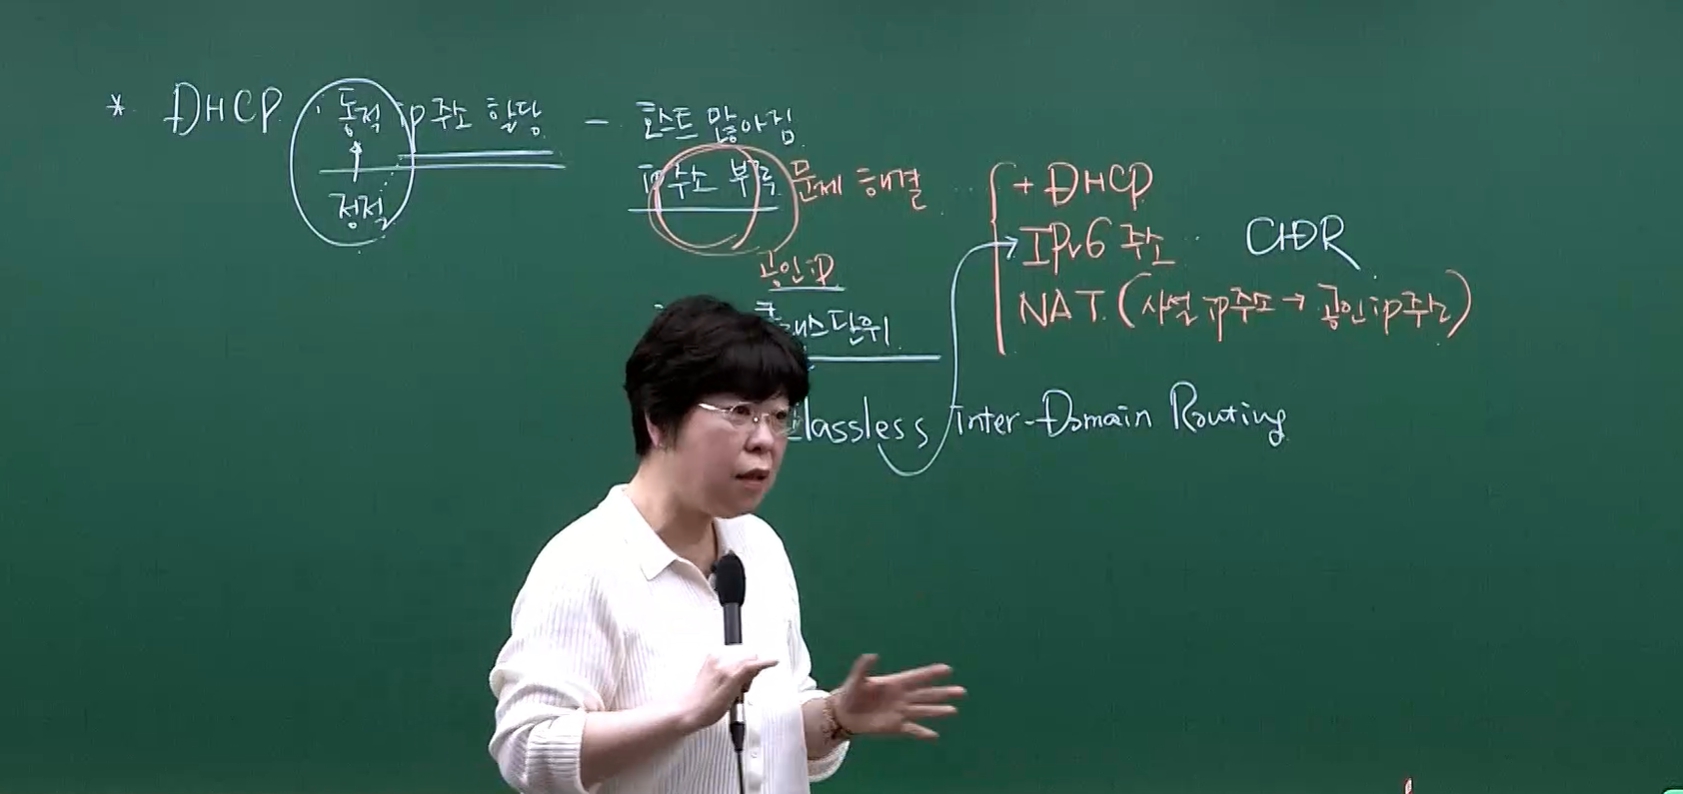 * DHCP : 동적 ip주소 할당 - 호스트 많아짐
정적
ip주소 부족 문제 해결
공인ip
클래스단위
+ DHCP
IPv6 주소 CIDR
NAT. (사설 ip주소 → 공인ip주소)
classless inter-Domain Routing